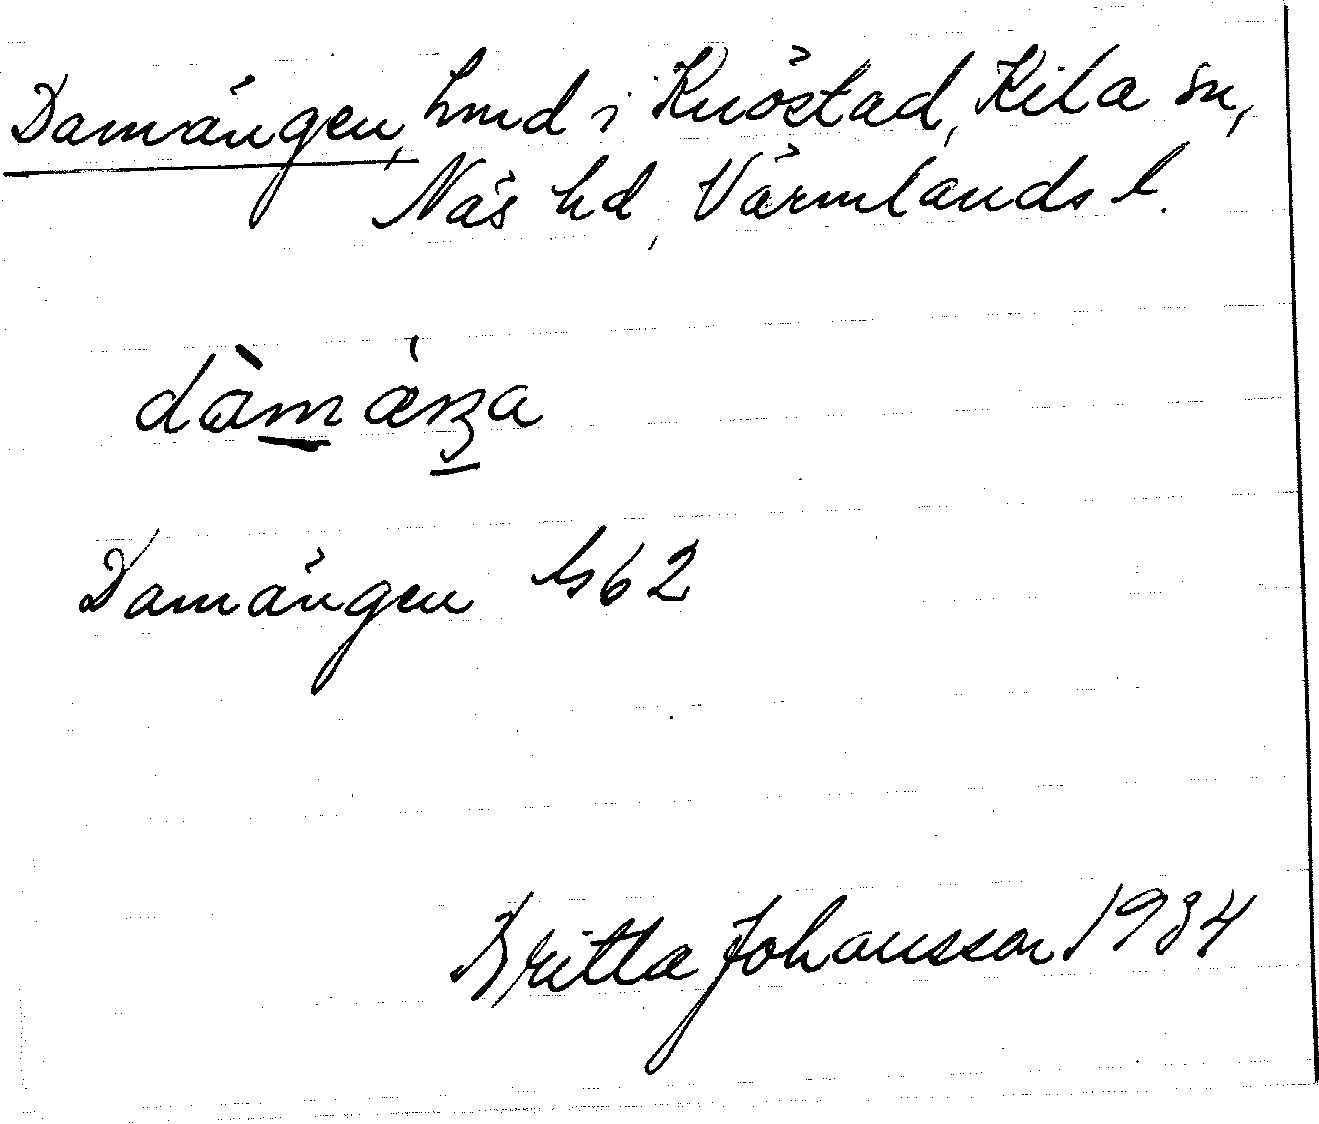 Damängen, hmd i Knöstad, Kila sn,
Näs hd, Värmlands l.
dàmǽŋa
Damängen ls 62
Britta Johansson 1934